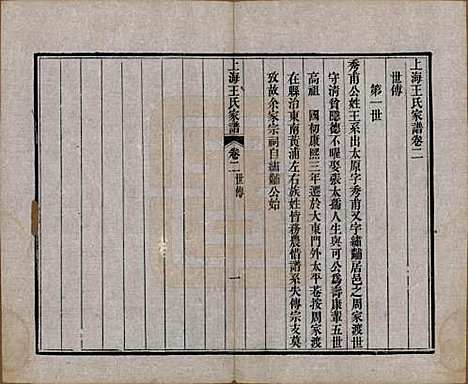 上海王氏家譜卷二
世傳
第一世
秀甫公姓王系出太原字秀甫又字繡黼居邑之周家渡世
守清貧隱德不曜娶張太孺人生與可公爲壽康輩五世
高祖　國初康熙三年遷於大東門外太平巷按周家渡
在縣治東南黃浦左右族姓皆務農惜譜系失傳宗支莫
攷故余家宗祠自繡黼公始
上海王氏家譜　卷二　世傳　一